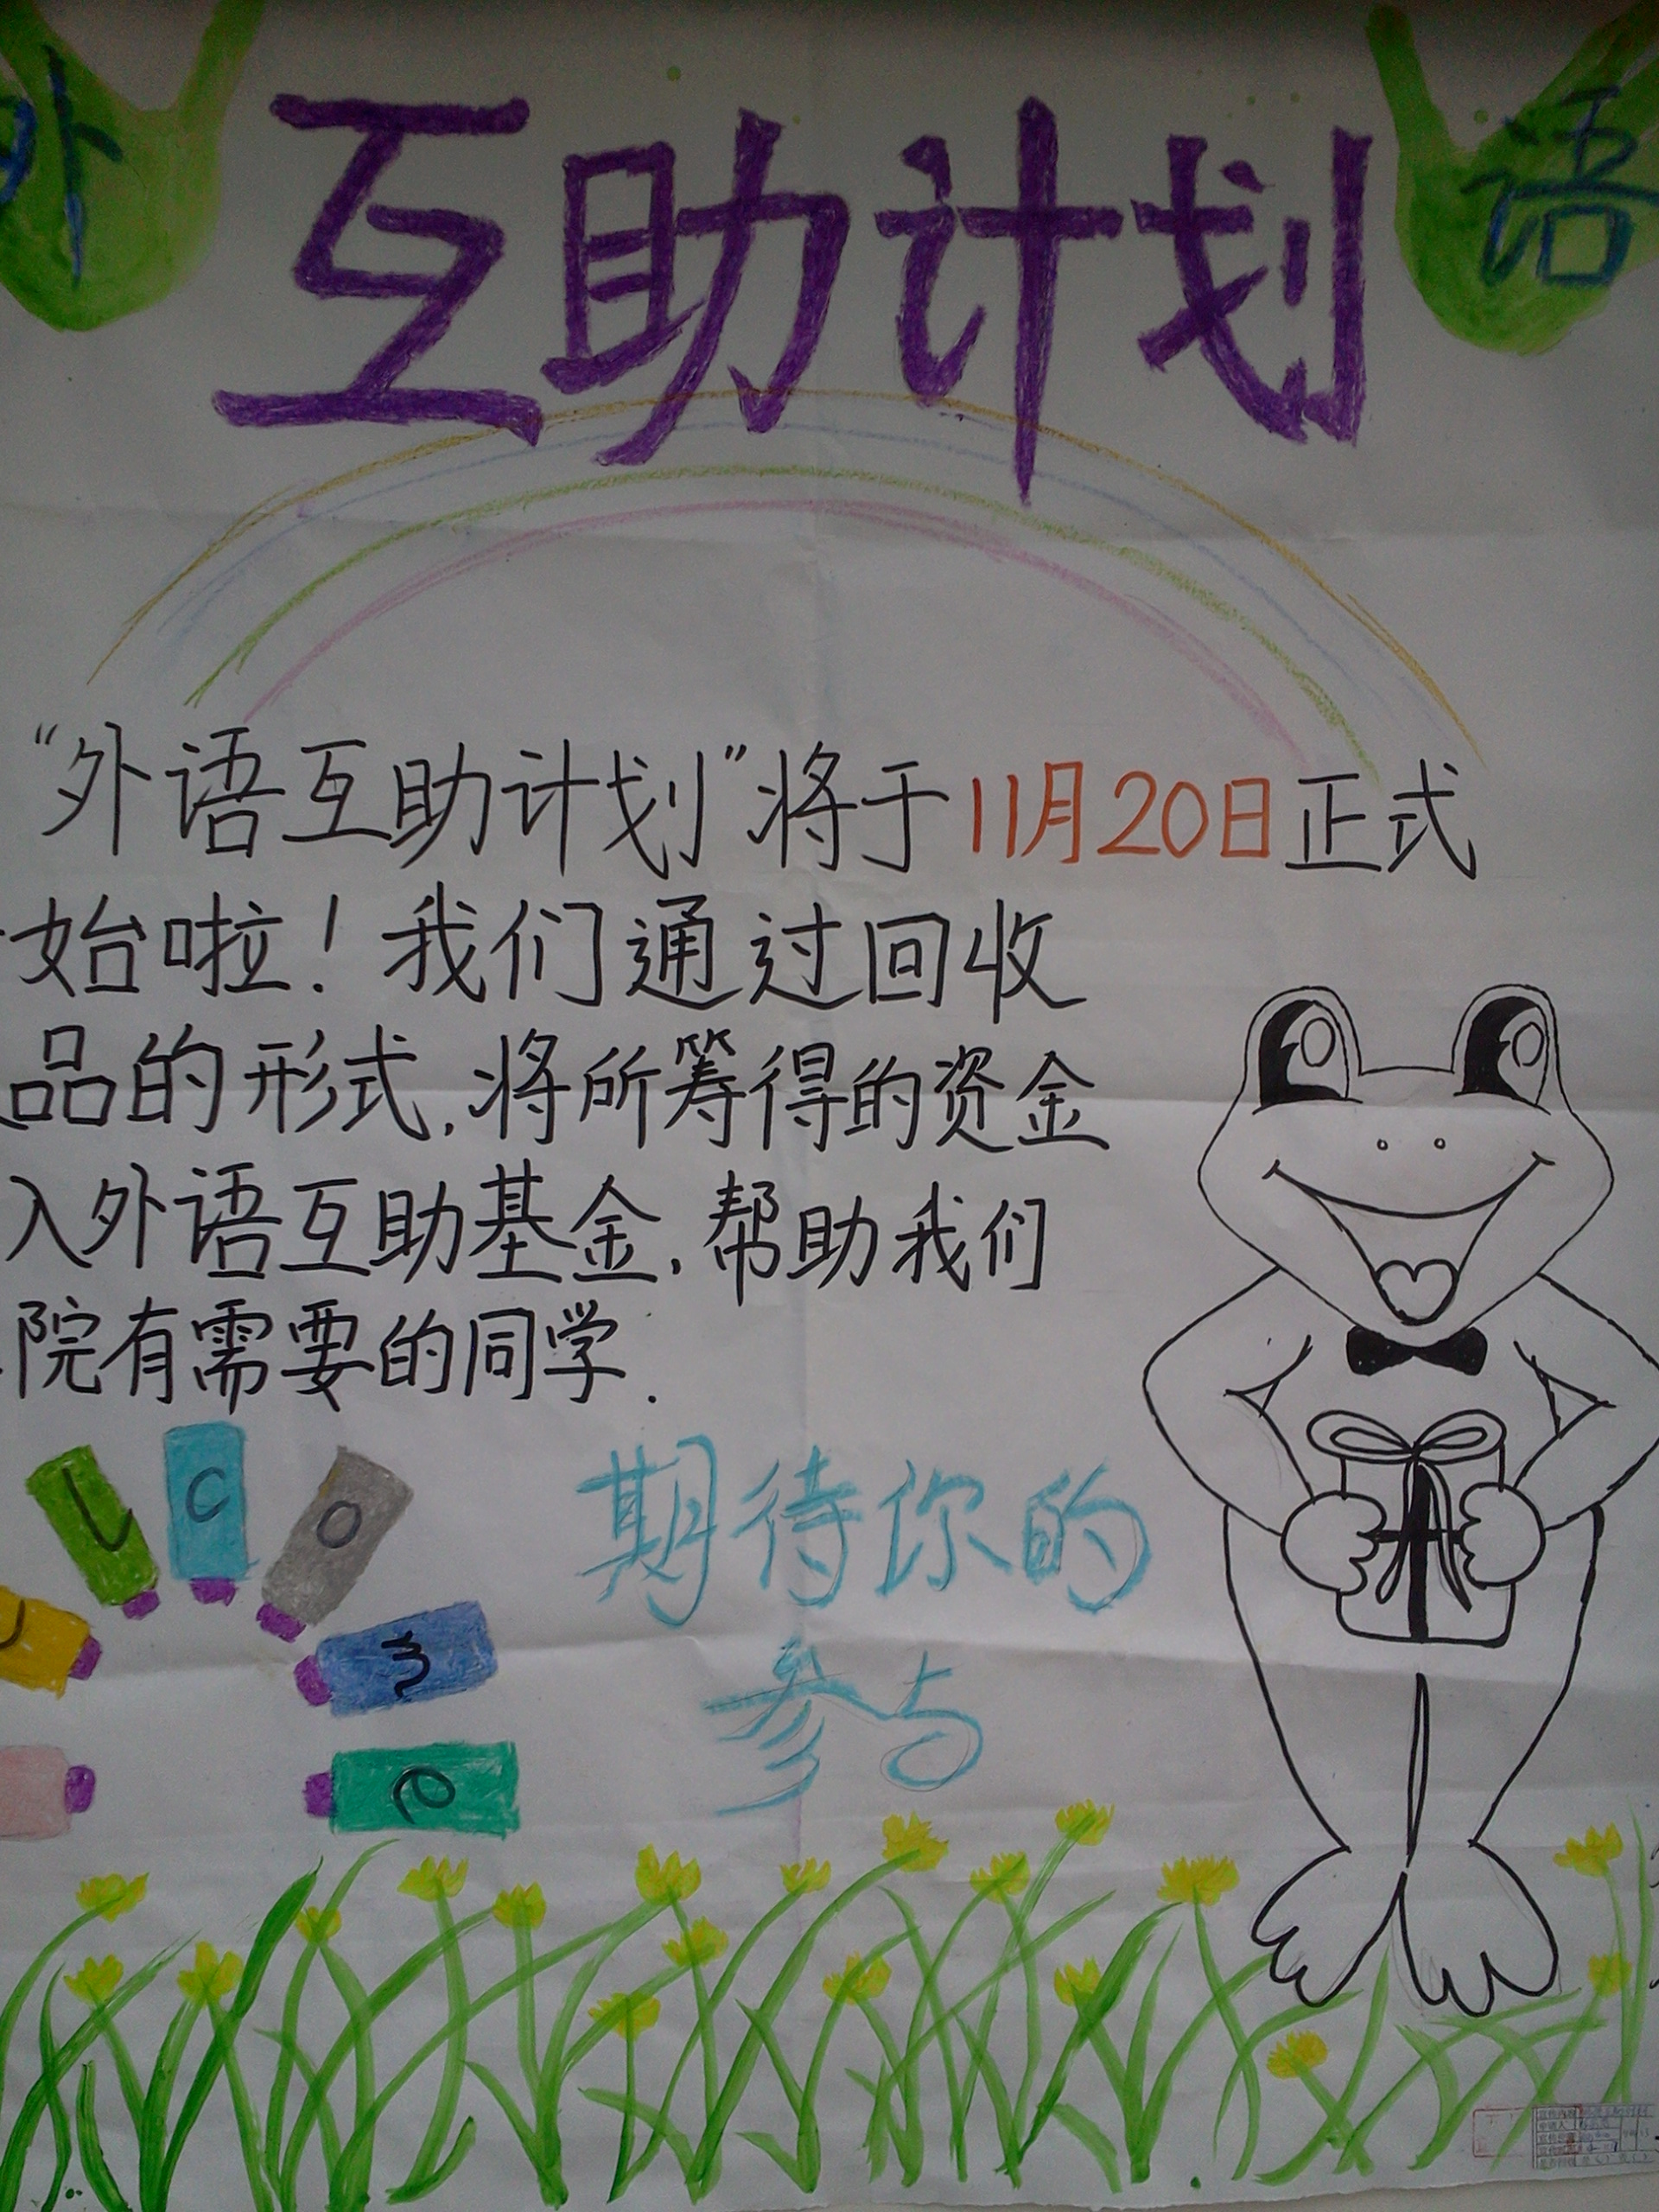 外 互助计划 语
“外语互助计划”将于11月20日正式
始啦！我们通过回收
品的形式，将所筹得的资金
入外语互助基金，帮助我们
院有需要的同学．
L C O M e
期待你的
参与